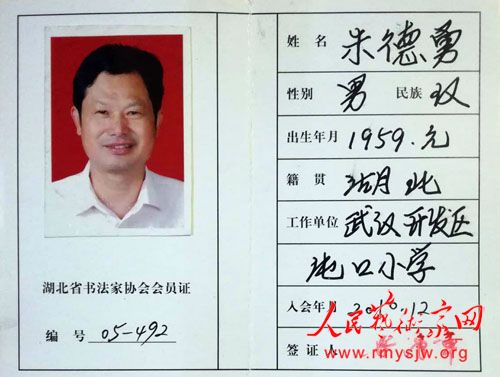 湖北省书法家协会会员证
编号 05-492
姓名 朱德勇
性别 男 民族 汉
出生年月 1959.元
籍贯 湖北
工作单位 武汉开发区
沌口小学
入会年月 2010.12
签证人
人民艺术家网
www.rmysjw.org